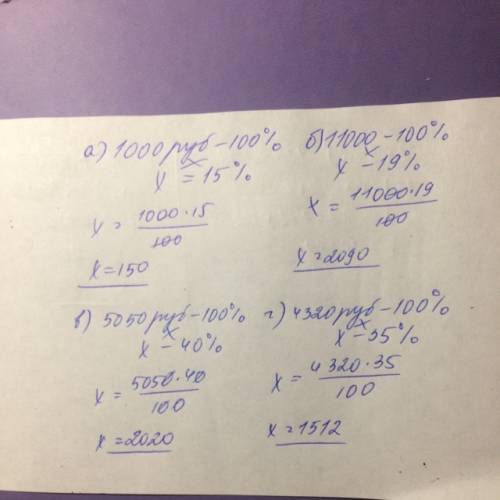 а) 1000 руб - 100%
x = 15%
x = 1000·15 / 100
x = 150
б) 11000 - 100%
x - 19%
x = 11000·19 / 100
x = 2090
в) 5050 руб - 100%
x - 40%
x = 5050·40 / 100
x = 2020
г) 4320 руб - 100%
x - 35%
x = 4320·35 / 100
x = 1512